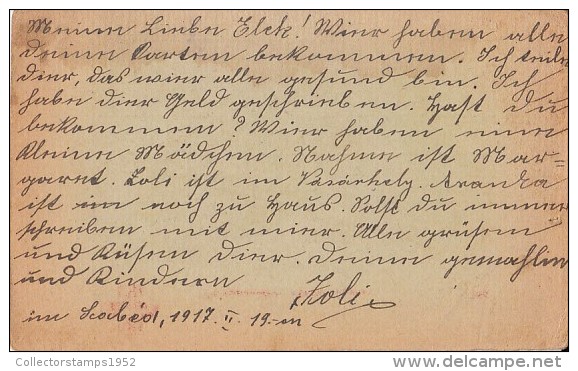 Meine Liebe Elek! Wier haben alle
deine Karten bekommen. Ich teile
dier, das wier alle gesund bin. Ich
habe dier Geld geschrieben. Hast du
bekommen? Wier haben eine
Kleine Mädchen. Nahme ist Mar=
garet. Loli ist im Vásárhely. Aranka
ist im noch zu Haus. Solst du immer
schreiben mit mier. Alle grüsen
und Küsen dier. Deine gemahlin
und Kindern Joli
im 1917. II. 19-en
Collectorstamps1952
delcampe.net